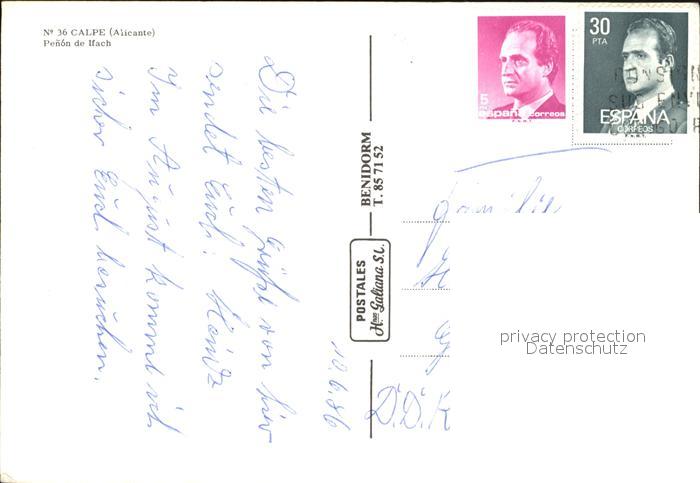 Nº 36 CALPE (Alicante)
Peñón de Ifach
Die besten Grüße von hier
sendet Euch: Heinz
Im August komme ich
sicher Euch besuchen.
10.6.86
BENIDORM
T. 85 71 52
POSTALES
Hnos Galiana S.L.
5
PTA
españa correos
F.N.M.T.
30
PTA
ESPAÑA
CORREOS
F.N.M.T.
Familie
privacy protection
Datenschutz